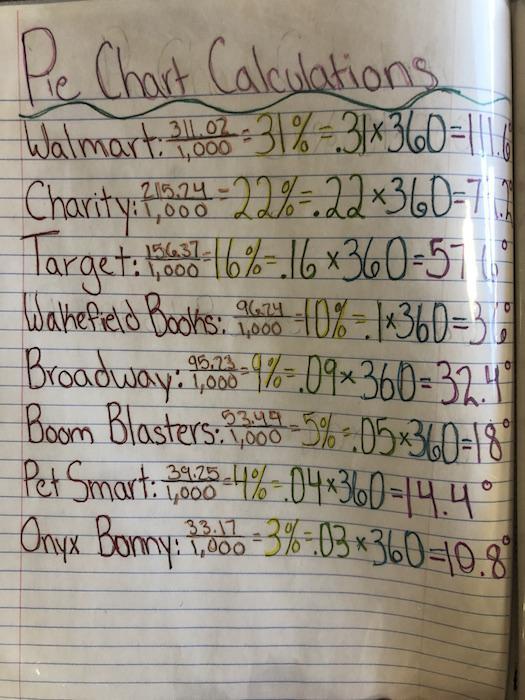 Pie Chart Calculations
Walmart: 311.02/1,000 = 31% = .31 × 360 = 111.6°
Charity: 215.74/1,000 = 22% = .22 × 360 =
Target: 156.37/1,000 = 16% = .16 × 360 = 57.6°
Wakefield Books: 96.74/1,000 = 10% = .1 × 360 = 36°
Broadway: 95.73/1,000 = 9% = .09 × 360 = 32.4°
Boom Blasters: 53.49/1,000 = 5% = .05 × 360 = 18°
Pet Smart: 39.25/1,000 = 4% = .04 × 360 = 14.4°
Onyx Bonny: 33.17/1,000 = 3% = .03 × 360 = 10.8°